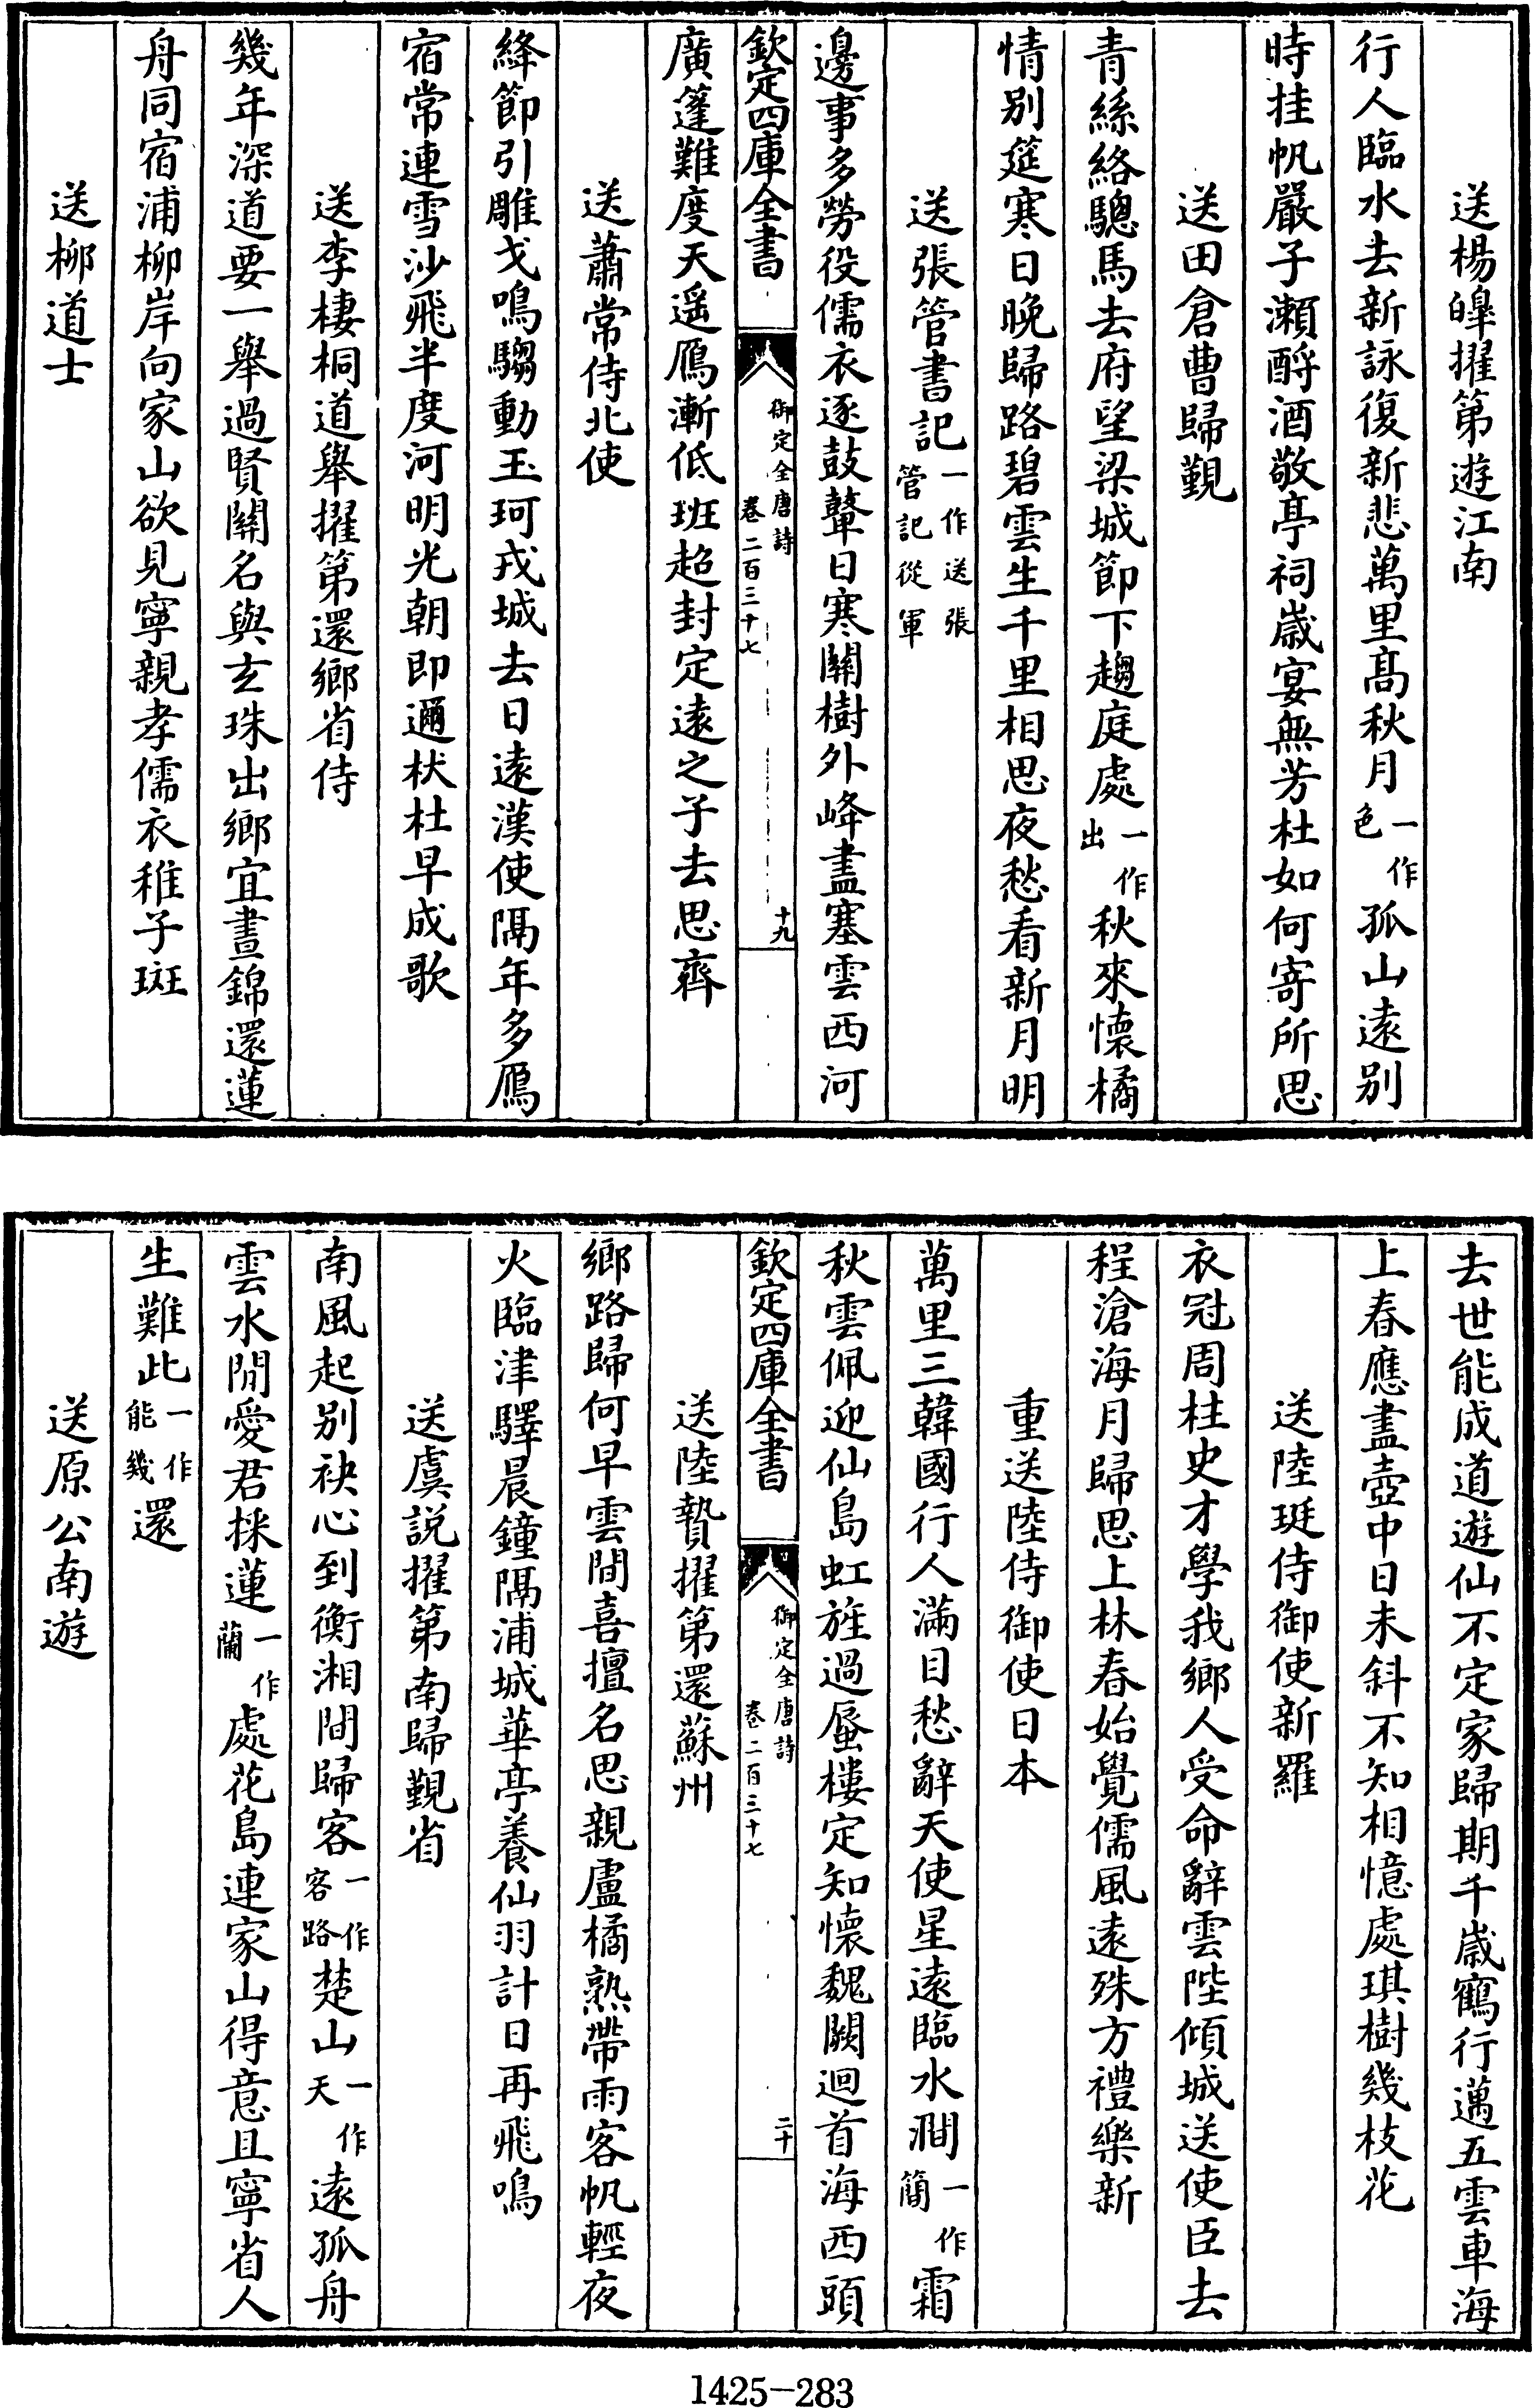 送楊皥擢第遊江南
行人臨水去新詠復新悲萬里髙秋月一作色孤山遠别
時挂帆嚴子瀬酹酒敬亭祠歳宴無芳杜如何寄所思
送田倉曹歸觐
青絲絡驄馬去府望梁城節下趨庭處一作出秋來懷橘
情别筵寒日晚歸路碧雲生千里相思夜愁看新月明
送張管書記一作送張管記從軍
邊事多勞役儒衣逐鼓鼙日寒闗樹外峰盡塞雲西河
欽定四庫全書
御定全唐詩
卷二百三十七
十九
廣蓬難度天遥鴈漸低班超封定遠之子去思齊
送蕭常侍北使
絳節引雕戈鳴騶動玉珂戎城去日遠漢使隔年多鴈
宿常連雪沙飛半度河明光朝即邇杕杜早成歌
送李棲桐道舉擢第還鄉省侍
幾年深道要一舉過賢闗名與玄珠出鄉宜晝錦還蓮
舟同宿浦柳岸向家山欲見寧親孝儒衣稚子斑
送柳道士
去世能成道遊仙不定家歸期千歳鶴行邁五雲車海
上春應盡壺中日未斜不知相憶處琪樹幾枝花
送陸珽侍御使新羅
衣冠周柱史才學我鄉人受命辭雲陛傾城送使臣去
程滄海月歸思上林春始覺儒風遠殊方禮樂新
重送陸侍御使日本
萬里三韓國行人滿目愁辭天使星遠臨水澗一作簡霜
秋雲佩迎仙島虹旌過蜃樓定知懷魏闕迴首海西頭
欽定四庫全書
御定全唐詩
卷二百三十七
二十
送陸贄擢第還蘇州
鄉路歸何早雲間喜擅名思親盧橘熟帶雨客帆輕夜
火臨津驛晨鐘隔浦城華亭養仙羽計日再飛鳴
送虞説擢第南歸觐省
南風起别袂心到衡湘間歸客一作客路楚山一作天遠孤舟
雲水閒愛君採蓮一作蘭處花島連家山得意且寧省人
生難此一作能幾還
送原公南遊
1425-283